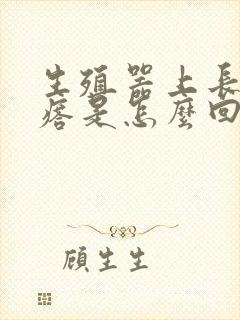 生殖器上長
痞是怎麼回
顧生生